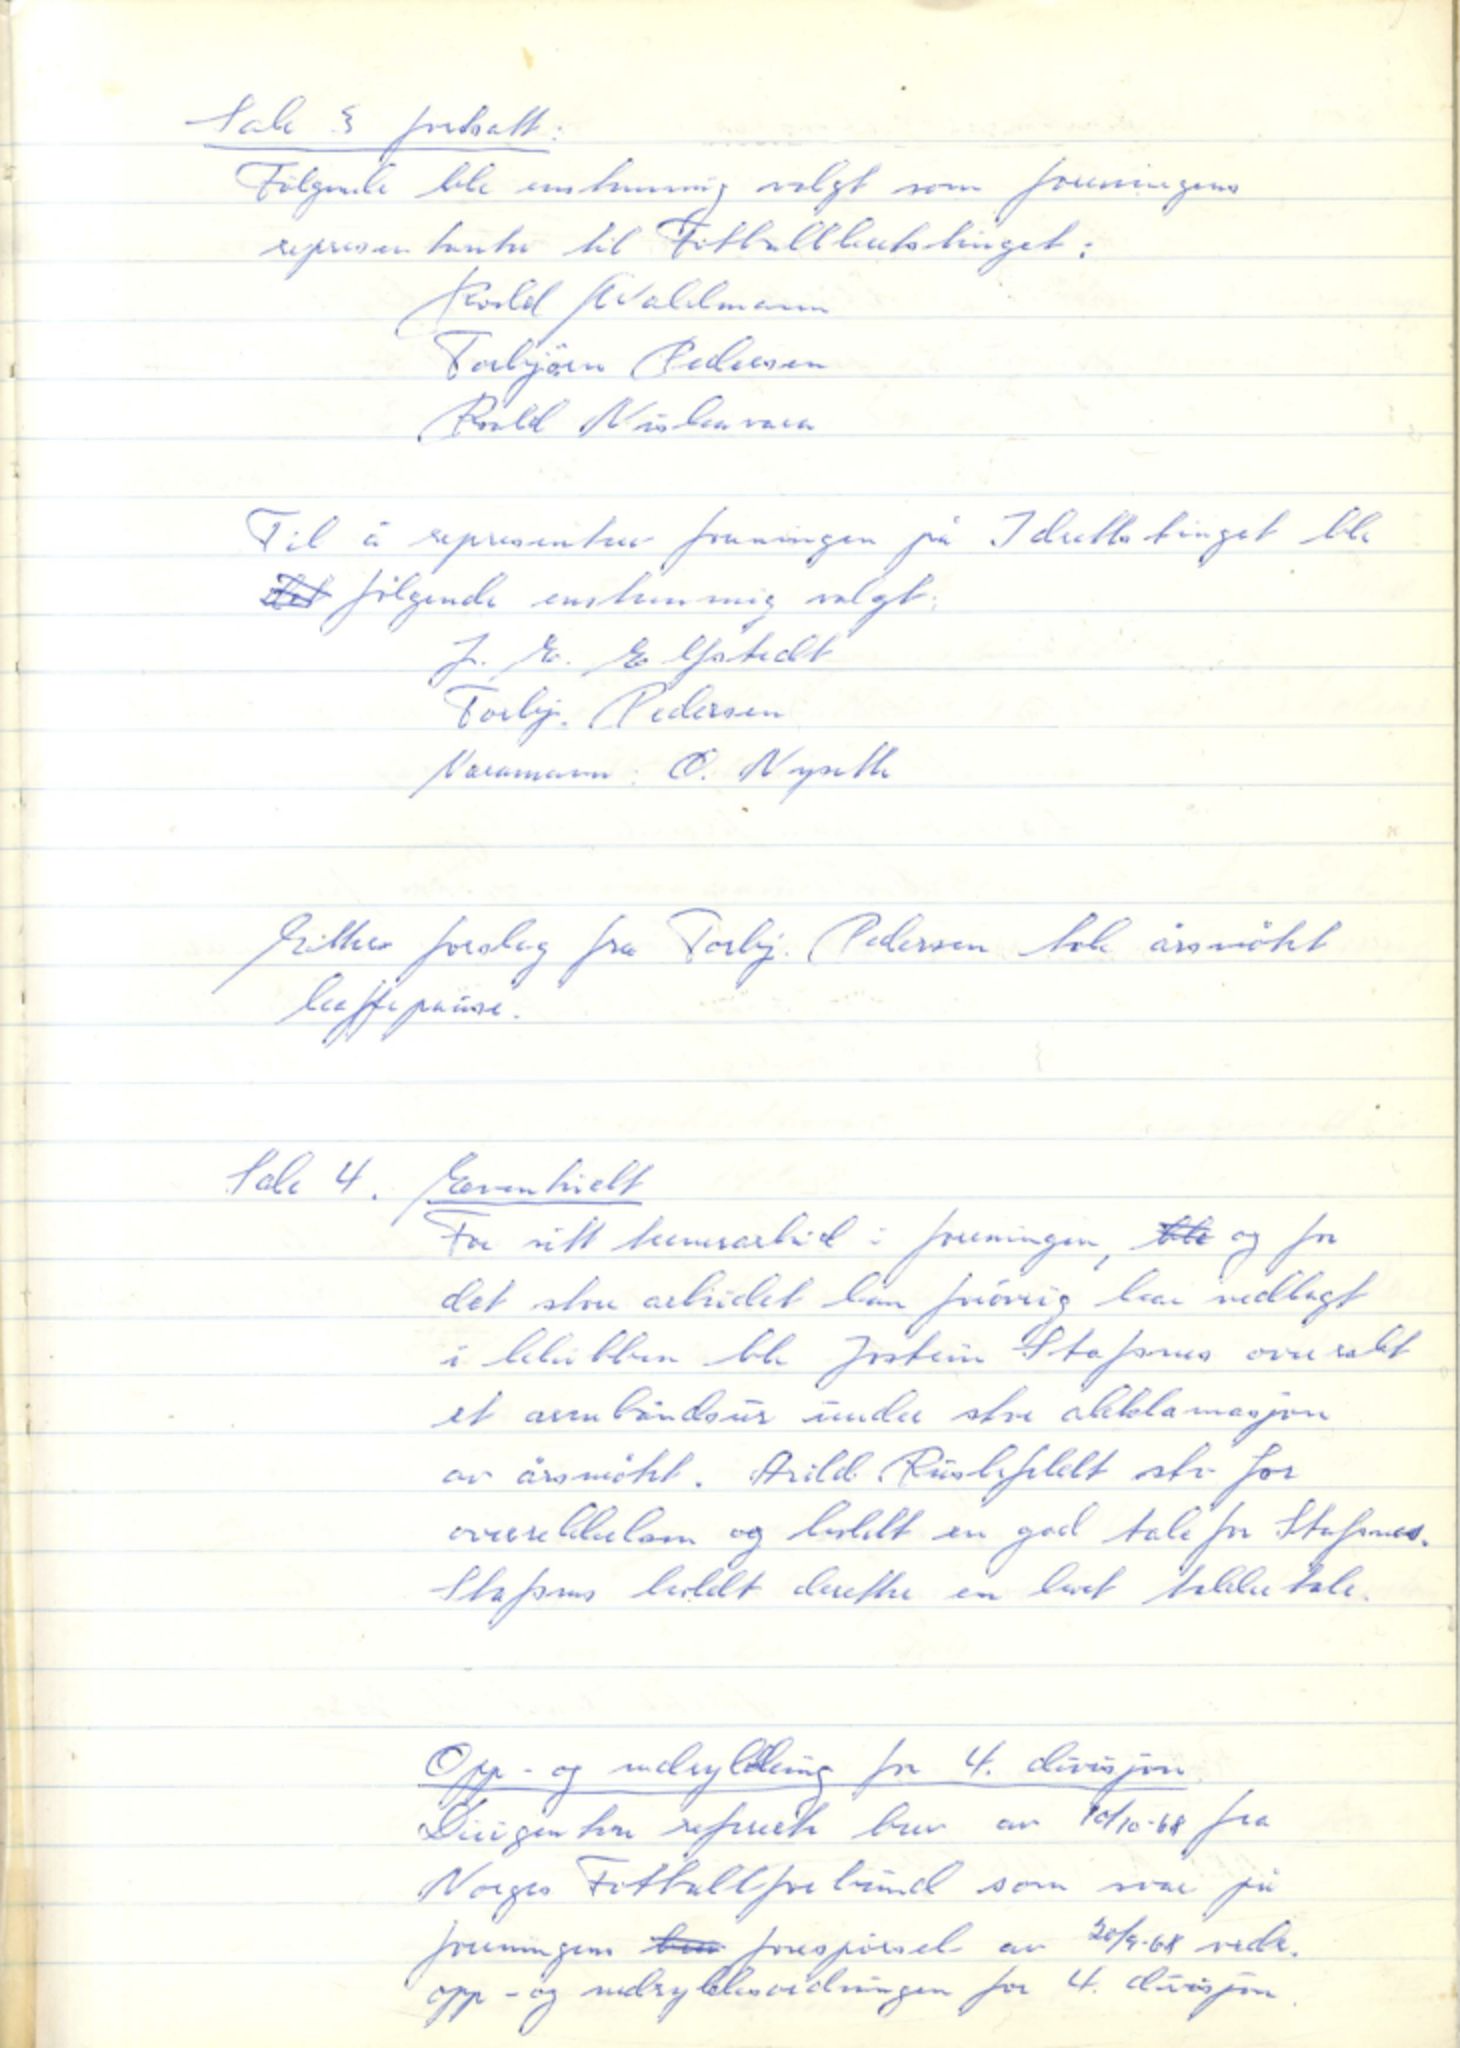 Sak 3 fortsatt:
Følgende ble enstemmig valgt som foreningens
representanter til Fotballkretstinget:
Roald Waldmann
Torbjörn Pedersen
Roald Niskavara
Til å representere foreningen på Idrettstinget ble
følgende enstemmig valgt:
J. E. Elfstedt
Torbj. Pedersen
Varamann: O. Nysetth
Etter forslag fra Torbj. Pedersen tok årsmötet
kaffepause.
Sak 4. Eventuelt
For sitt trenerarbeid i foreningen, ble og for
det store arbeidet han forövrig har nedlagt
i klubben ble Jostein Stafsnes overrakt
et armbåndsur under stor akklamasjon
av årsmötet. Arild Rushfeldt sto for
overrekkelsen og holdt en god tale for Stafsnes.
Stafsnes holdt deretter en kort takketale.
Opp- og nedrykking for 4. divisjon
Dirigenten refererte brev av 10/10-68 fra
Norges Fotballforbund som svar på
foreningens brev forespörsel av 20/9-68 vedr.
opp- og nedrykksordningen for 4. divisjon.